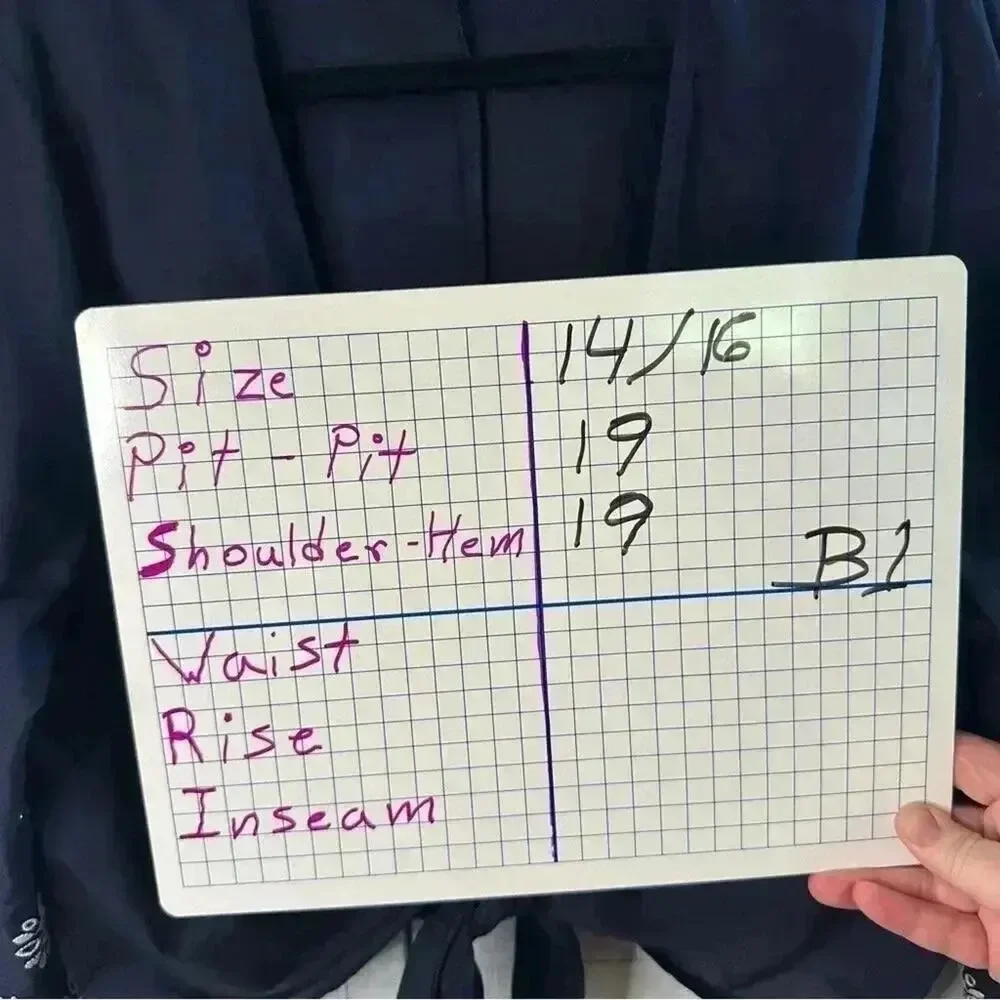 Size 14/16
Pit - Pit 19
Shoulder-Hem 19
B1
Waist
Rise
Inseam